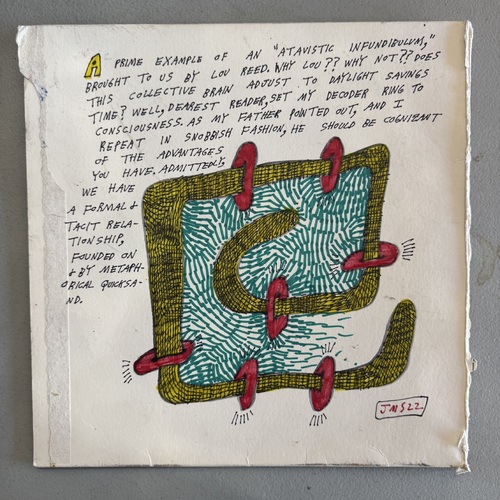 A PRIME EXAMPLE OF AN "ATAVISTIC INFUNDIBULUM,"
BROUGHT TO US BY LOU REED. WHY LOU?? WHY NOT?? DOES
THIS COLLECTIVE BRAIN ADJUST TO DAYLIGHT SAVINGS
TIME? WELL, DEAREST READER, SET MY DECODER RING TO
CONSCIOUSNESS. AS MY FATHER POINTED OUT, AND I
REPEAT IN SNOBBISH FASHION, HE SHOULD BE COGNIZANT
OF THE ADVANTAGES
YOU HAVE. ADMITTEDLY,
WE HAVE
A FORMAL +
TACIT RELA-
TIONSHIP,
FOUNDED ON
+ BY METAPH-
ORICAL QUICKSA-
ND.
JMS22